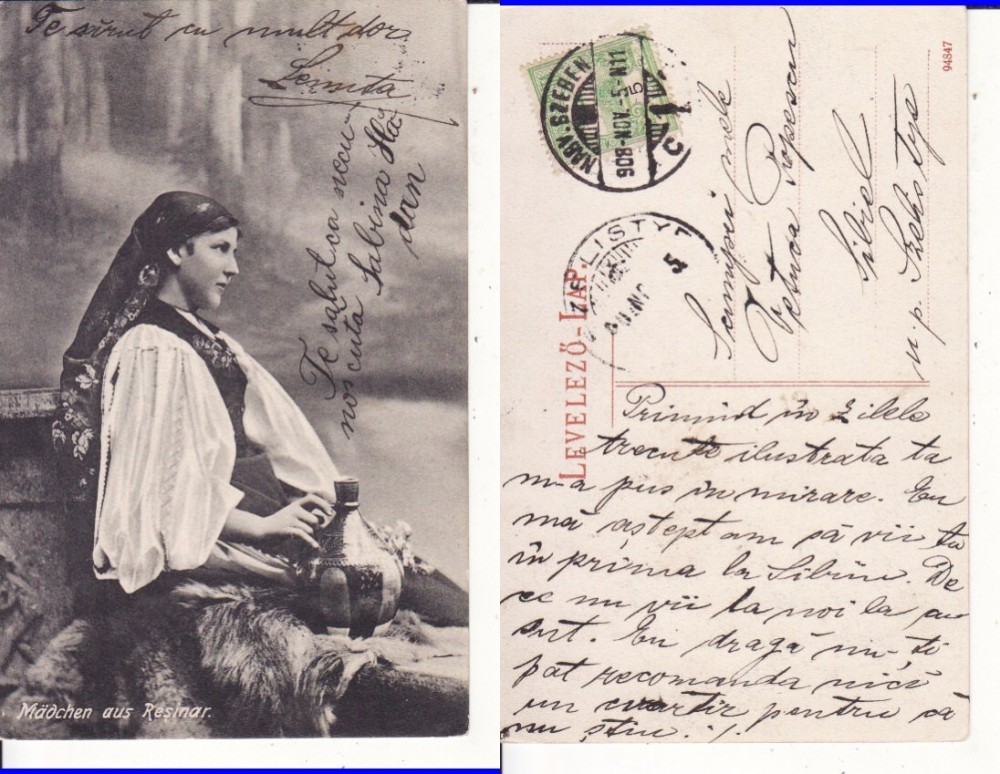 Te sărut cu mult dor
Lenuta
Te salut ca necu-
noscuta Sabina
dan
Mädchen aus Resinar.
94847
NAGY-SZEBEN
908 NOV.-5-N11
5
LISTYE
LEVELEZŐ-LAP.
Petruca Popescu
Sibiel
u.p. Szelistye
Primind în zilele
trecute ilustrata ta
m-a pus în mirare. Eu
mă aștept am să vii tu
în prima la Sibiiu. De
ce nu vii la noi la
Eu dragă nu-ți
pot recomanda nici
un cvartir pentru că
nu știu ·/.